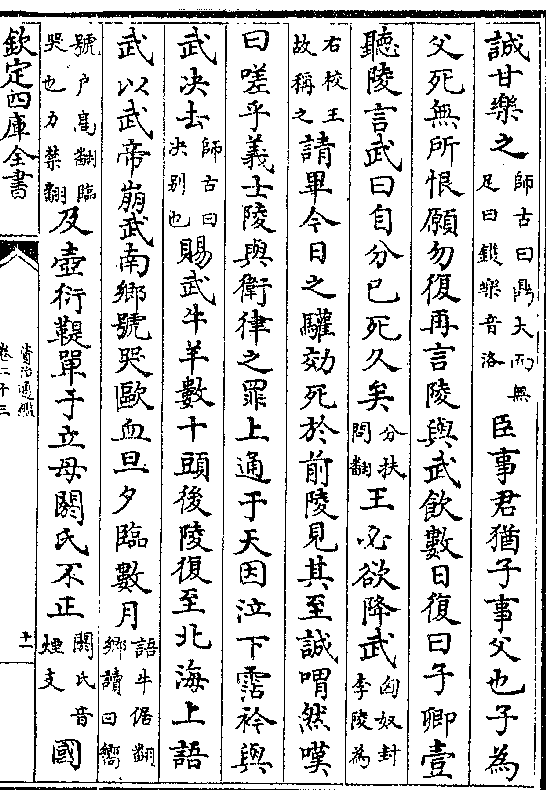 誠甘樂之師古曰鼎大而無足曰鑊樂音洛臣事君猶子事父也子為
父死無所恨願勿復再言陵與武飲數日復曰子卿壹
聽陵言武曰自分已死久矣分扶問翻王必欲降武匈奴封李陵為
右校王故稱之請畢今日之驩効死於前陵見其至誠喟然嘆
曰嗟乎義士陵與衛律之罪上通于天因泣下霑衿與
武决去師古曰决别也賜武牛羊數十頭後陵復至北海上語
武以武帝崩武南鄉號哭歐血旦夕臨數月語牛倨翻鄉讀曰嚮
號户髙翻臨哭也力禁翻及壺衍鞮單于立母閼氏不正閼氏音煙支國
欽定四庫全書
資治通鑑
卷二十三
十一